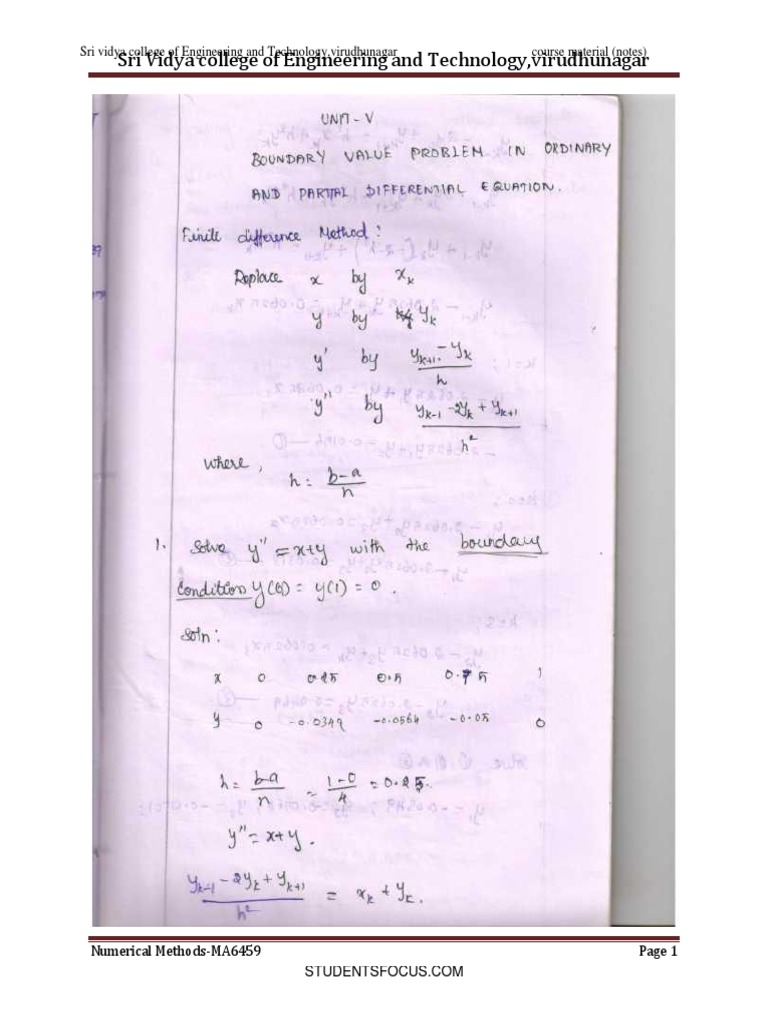 Sri vidya college of Engineering and Technology,virudhunagar course material (notes)
Sri Vidya college of Engineering and Technology,virudhunagar
UNIT - V
BOUNDARY VALUE PROBLEM IN ORDINARY
AND PARTIAL DIFFERENTIAL EQUATION.
Finite difference Method :
Replace x by xₖ
y by yₖ
y' by (yₖ₊₁ - yₖ)/h
y'' by (yₖ₋₁ - 2yₖ + yₖ₊₁)/h²
where,
h = (b-a)/n
1. Solve y'' = x+y with the boundary
condition y(0) = y(1) = 0.
Soln:
x 0 0.25 0.5 0.75 1
y 0 -0.0349 -0.0564 -0.05 0
h = (b-a)/n = (1-0)/4 = 0.25.
y'' = x+y.
(yₖ₋₁ - 2yₖ + yₖ₊₁)/h² = xₖ + yₖ.
Numerical Methods-MA6459 Page 1
STUDENTSFOCUS.COM